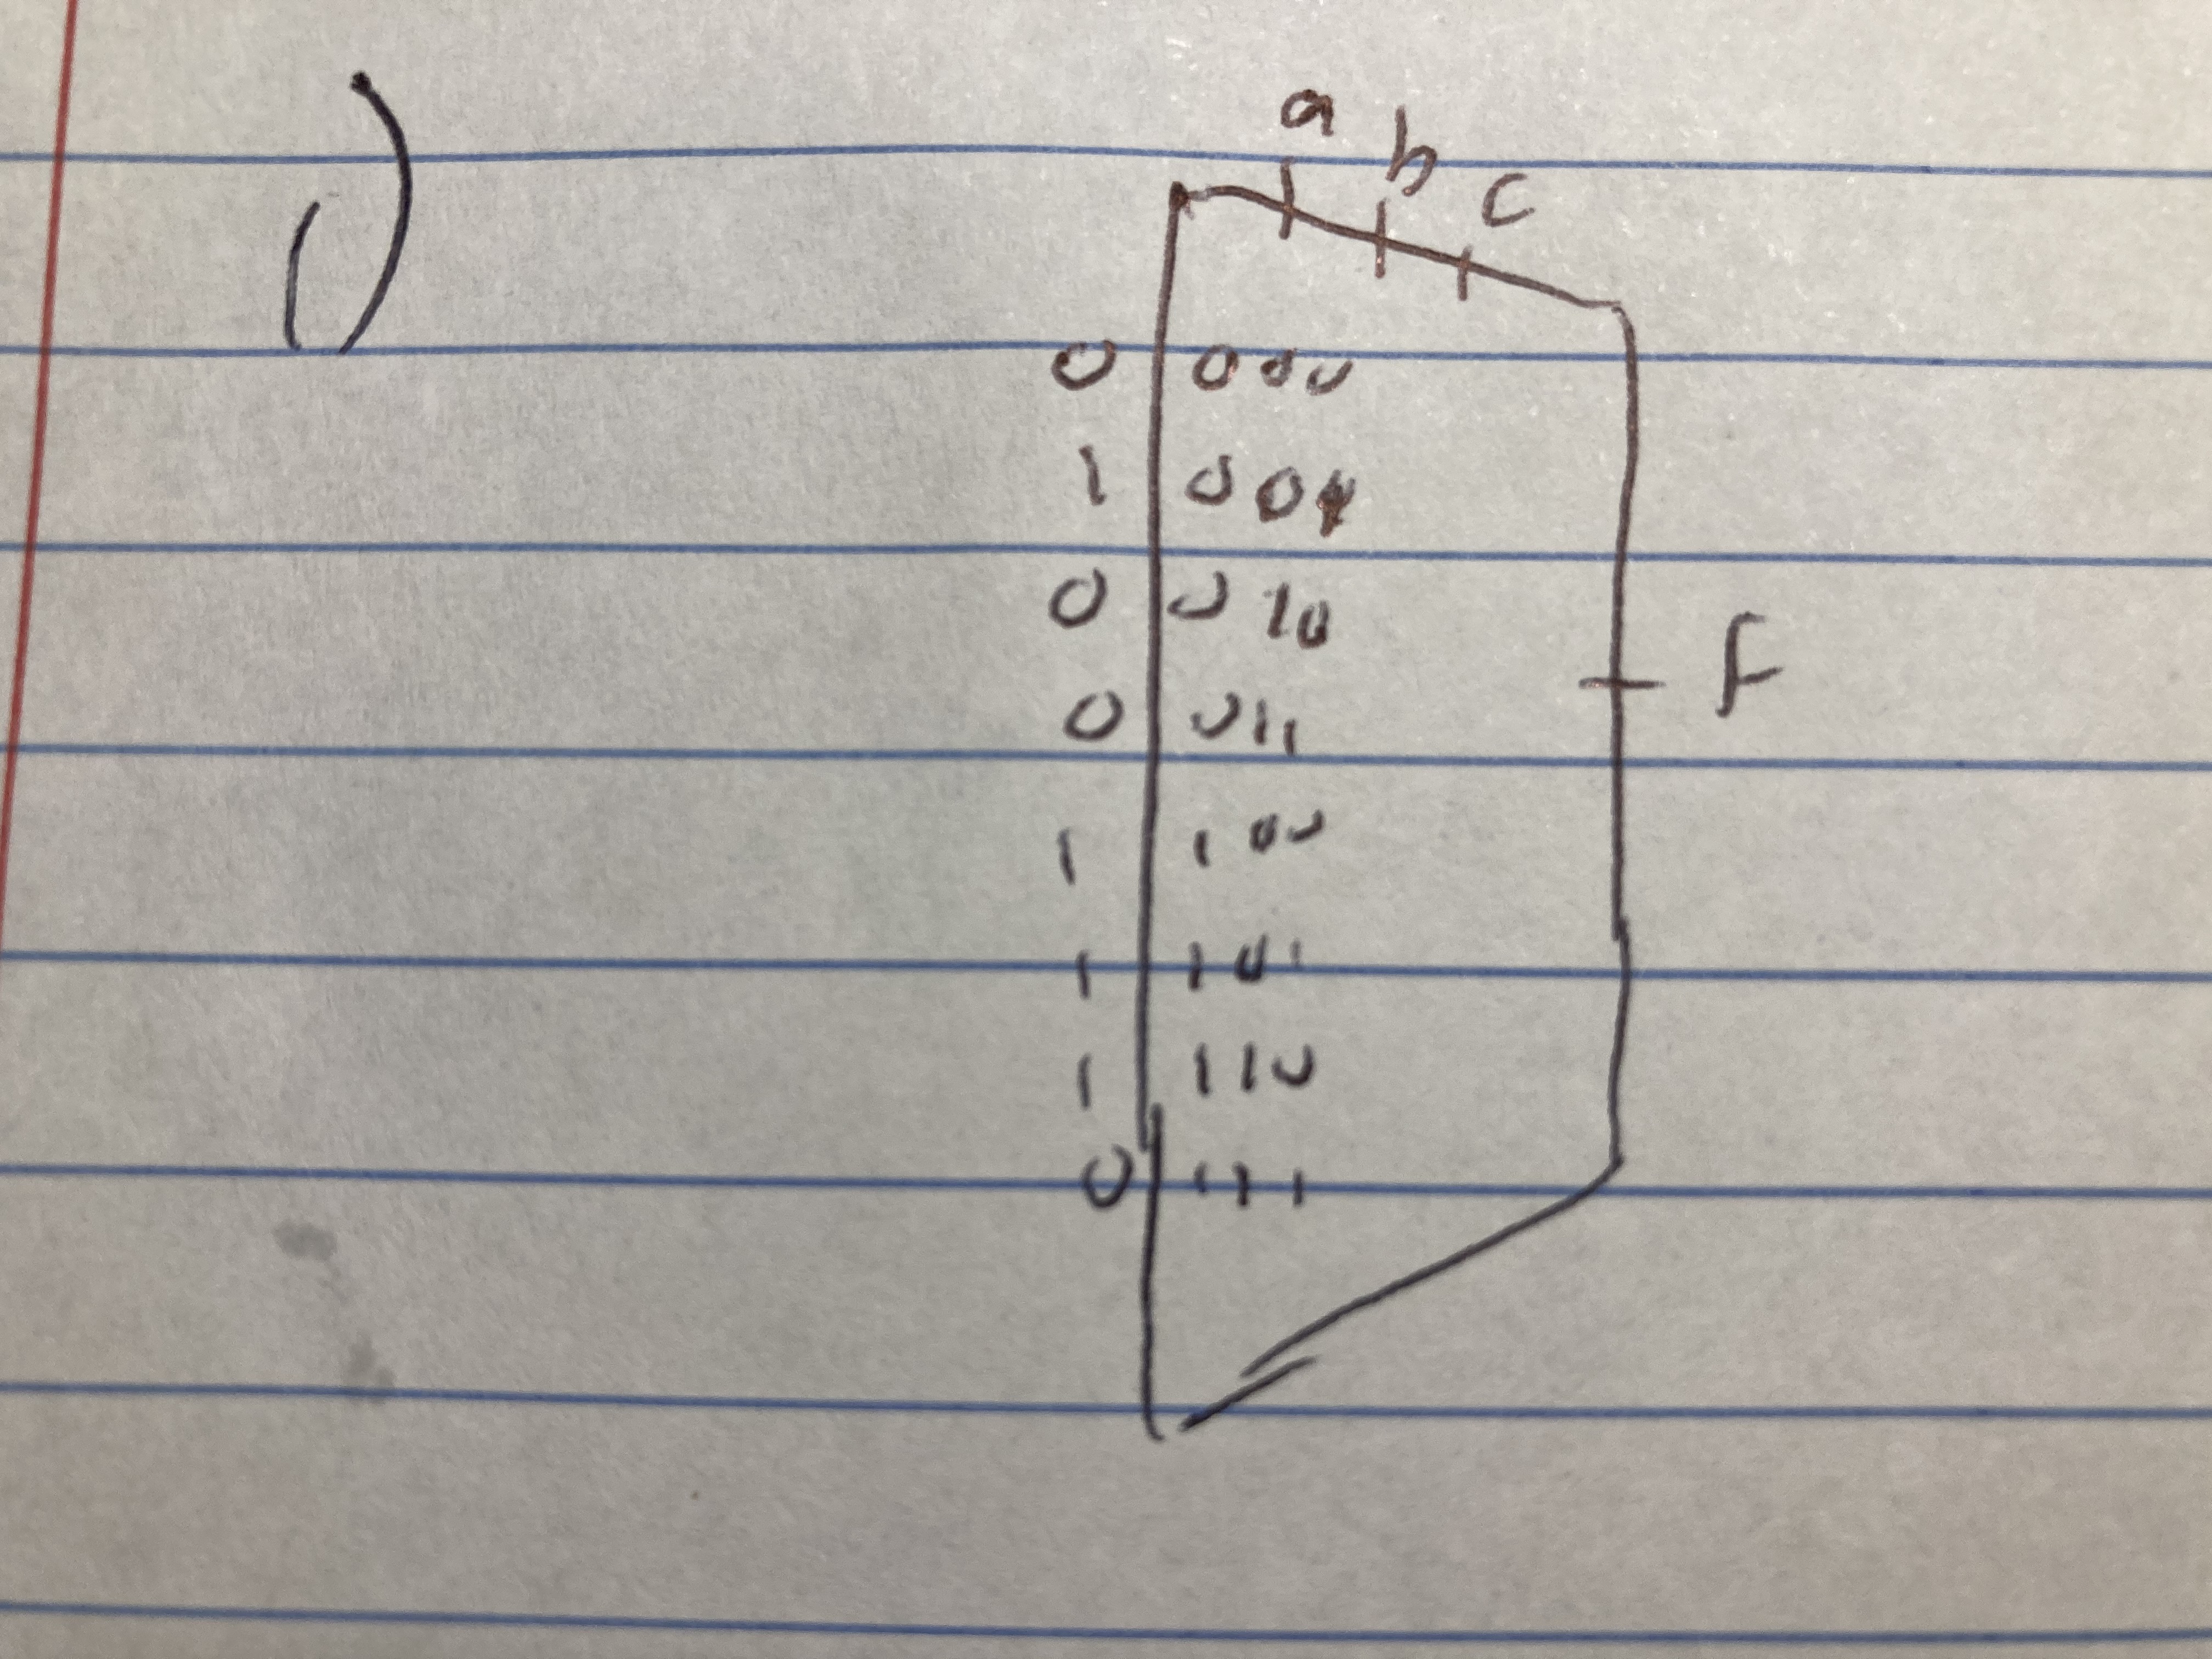 1)
a b c
0 000
1 001
0 010
0 011
F
1 100
1 101
1 110
0 111